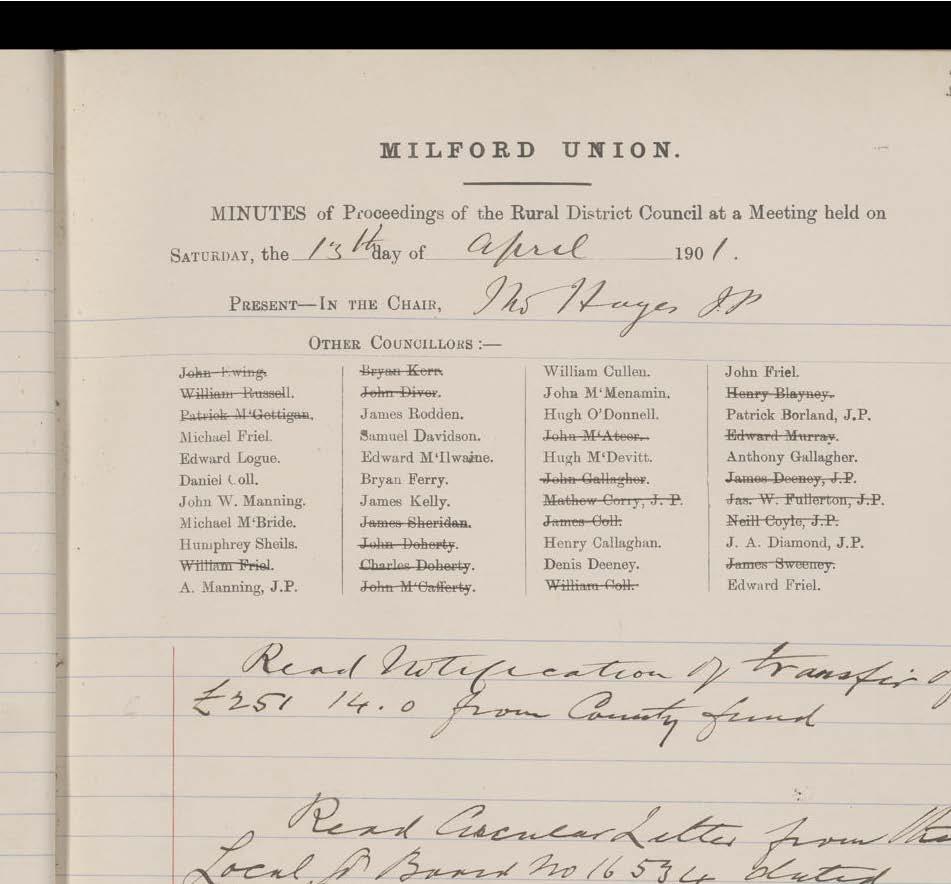 MILFORD UNION.
MINUTES of Proceedings of the Rural District Council at a Meeting held on
SATURDAY, the 13th day of April 1901.
PRESENT—IN THE CHAIR, Tho Hayes J.P
OTHER COUNCILLORS :—
John Ewing.
William Russell.
Patrick M'Gettigan.
Michael Friel.
Edward Logue.
Daniel Coll.
John W. Manning.
Michael M'Bride.
Humphrey Sheils.
William Friel.
A. Manning, J.P.
Bryan Kerr.
John Diver.
James Rodden.
Samuel Davidson.
Edward M'Ilwaine.
Bryan Ferry.
James Kelly.
James Sheridan.
John Doherty.
Charles Doherty.
John M'Cafferty.
William Cullen.
John M'Menamin.
Hugh O'Donnell.
John M'Ateer.
Hugh M'Devitt.
John Gallagher.
Mathew Corry, J. P.
James Coll.
Henry Callaghan.
Denis Deeney.
William Coll.
John Friel.
Henry Blayney.
Patrick Borland, J.P.
Edward Murray.
Anthony Gallagher.
James Deeney, J.P.
Jas. W. Fullerton, J.P.
Neill Coyle, J.P.
J. A. Diamond, J.P.
James Sweeney.
Edward Friel.
Read Notification of transfer
£251 14.0 from County fund
Read Circular Letter from the
Local G Board No 16534 dated